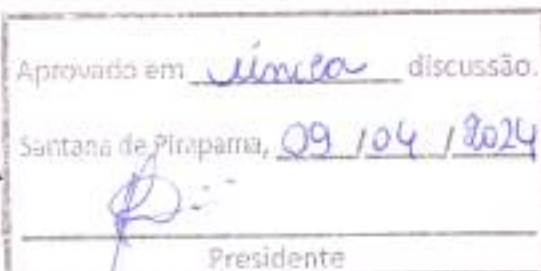 Aprovado em única discussão.
Santana de Pirapama, 09 / 04 / 2024
Presidente